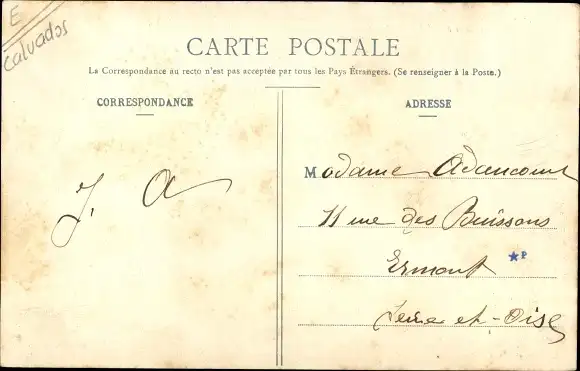 E
calvados
CARTE POSTALE
La Correspondance au recto n'est pas acceptée par tous les Pays Étrangers. (Se renseigner à la Poste.)
CORRESPONDANCE
J. A
ADRESSE
Madame Adancourt
11 rue des Buissons
Ermont
*P
Seine et-Oise